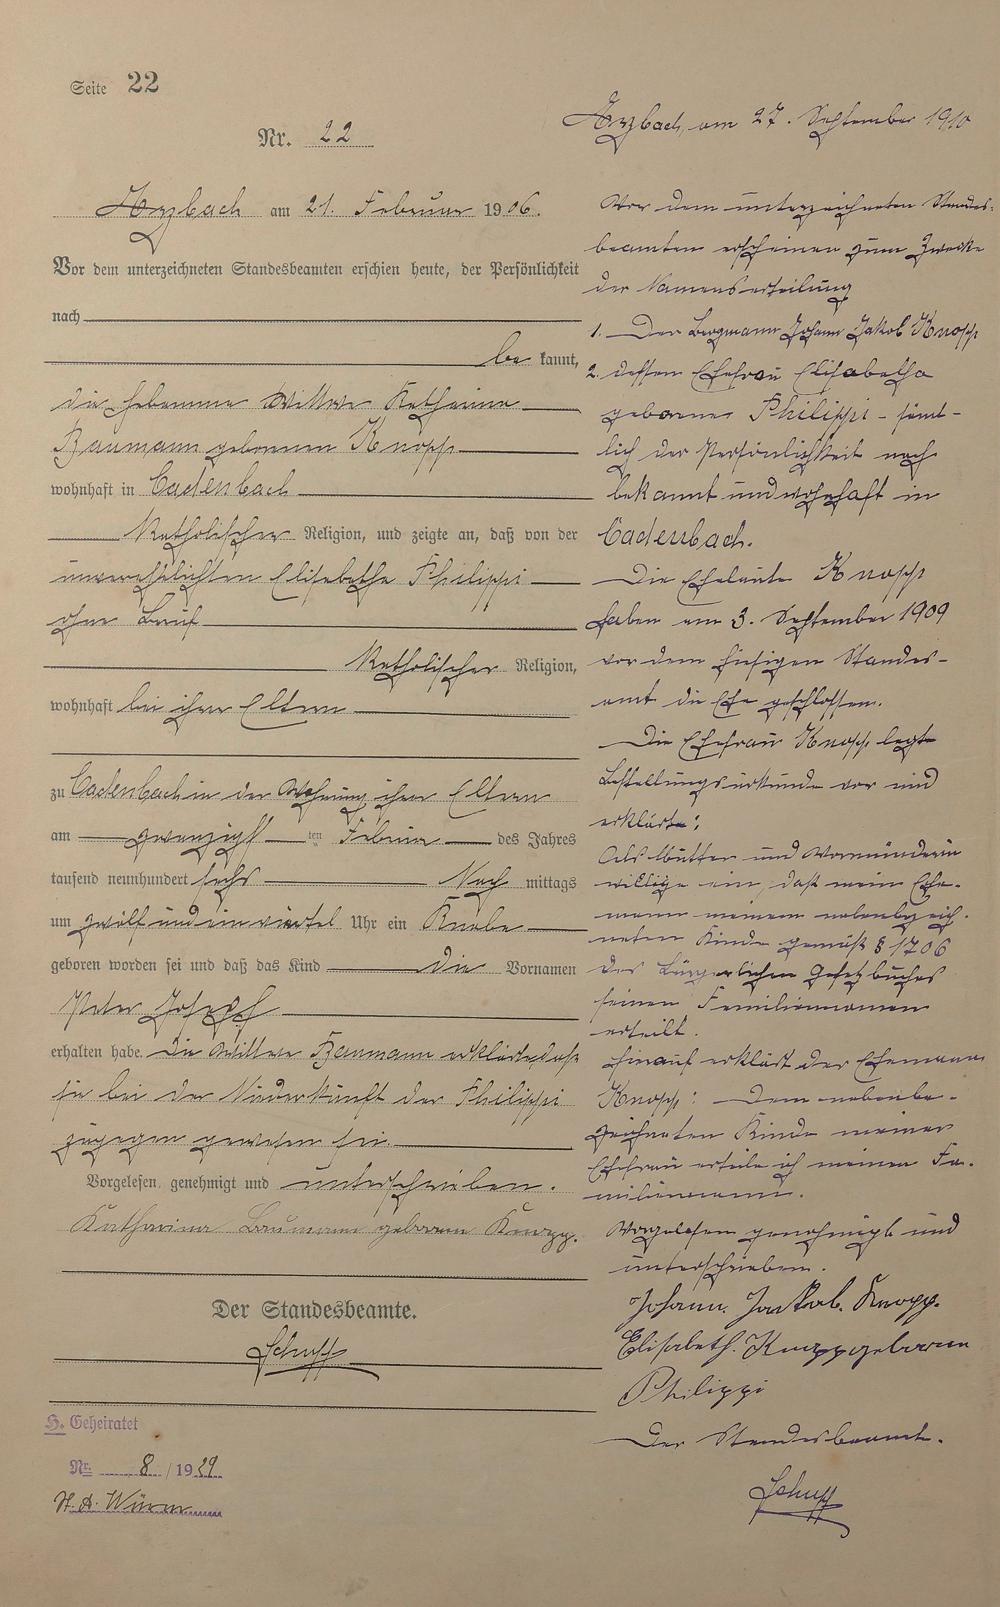 Seite 22
Nr. 22
Arzbach am 21. Februar 1906.
Vor dem unterzeichneten Standesbeamten erschien heute, der Persönlichkeit
nach
be kannt,
die Hebamme Wittwe Katharina
Baumann geborenen Knopp
wohnhaft in Cadenbach
Katholischer Religion, und zeigte an, daß von der
unverehelichten Elisabetha Philippi
ohne Beruf
Katholischer Religion,
wohnhaft bei ihren Eltern
zu Cadenbach in der Wohnung ihrer Eltern
am zwanzigst ten Februar des Jahres
tausend neunhundert sechs Nach mittags
um zwölf und ein viertel Uhr ein Knabe
geboren worden sei und daß das Kind die Vornamen
Peter Joseph
erhalten habe. Die Wittwe Baumann erklärte, daß
sie bei der Niederkunft der Philippi
zugegen gewesen sei.
Vorgelesen, genehmigt und unterschrieben.
Katharina Baumann geborene Knopp.
Der Standesbeamte.
Schupp
H. Geheiratet
Nr. 8 / 1929
St. A. Würm
Arzbach, am 27. September 1910
Vor dem unterzeichneten Standes-
beamten erscheinen zum Zwecke
der Namenserteilung
1. Der Bergmann Johann Jakob Knopp
2. dessen Ehefrau Elisabetha
geborene Philippi - sämt-
lich der Persönlichkeit nach
bekannt und wohnhaft in
Cadenbach.
Die Eheleute Knopp
haben am 3. September 1909
vor dem hiesigen Standes-
amt die Ehe geschlossen.
Die Ehefrau Knopp legte
Bestellungsurkunde vor und
erklärte:
Als Mutter und Vormünderin
willige ein, daß mein Ehe-
mann meinem nebenbezeich-
neten Kinde gemäß § 1706
des Bürgerlichen Gesetzbuches
seinen Familiennamen
erteilt.
Hierauf erklärt der Ehemann
Knopp: Dem nebenbe-
zeichneten Kinde meiner
Ehefrau erteile ich meinen Fa-
miliennamen.
Vorgelesen genehmigt und
unterschrieben.
Johann Jackob. Knopp.
Elisabeth. Knopp geborene
Philippi
Der Standesbeamte.
Schupp